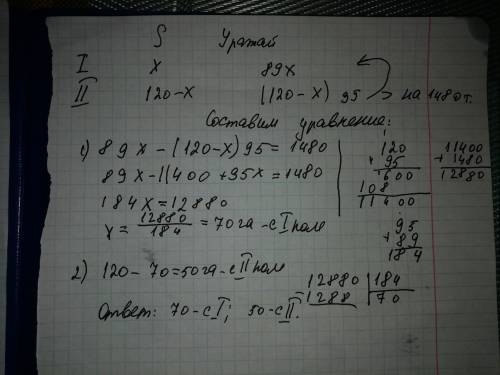 S Урожай
I х 89х
II 120-х (120-х) 95 на 1480т.
Составим уравнение:
1) 89х - (120-х)95 = 1480
89х - 11400 + 95х = 1480
184х = 12880
х = 12880/184 = 70 га - с I поля
2) 120 - 70 = 50 га - с II поля
Ответ: 70 - с I; 50 - с II.
120
95
600
108
11400
11400
+ 1480
12880
95
+ 89
184
12880 | 184
1288 | 70